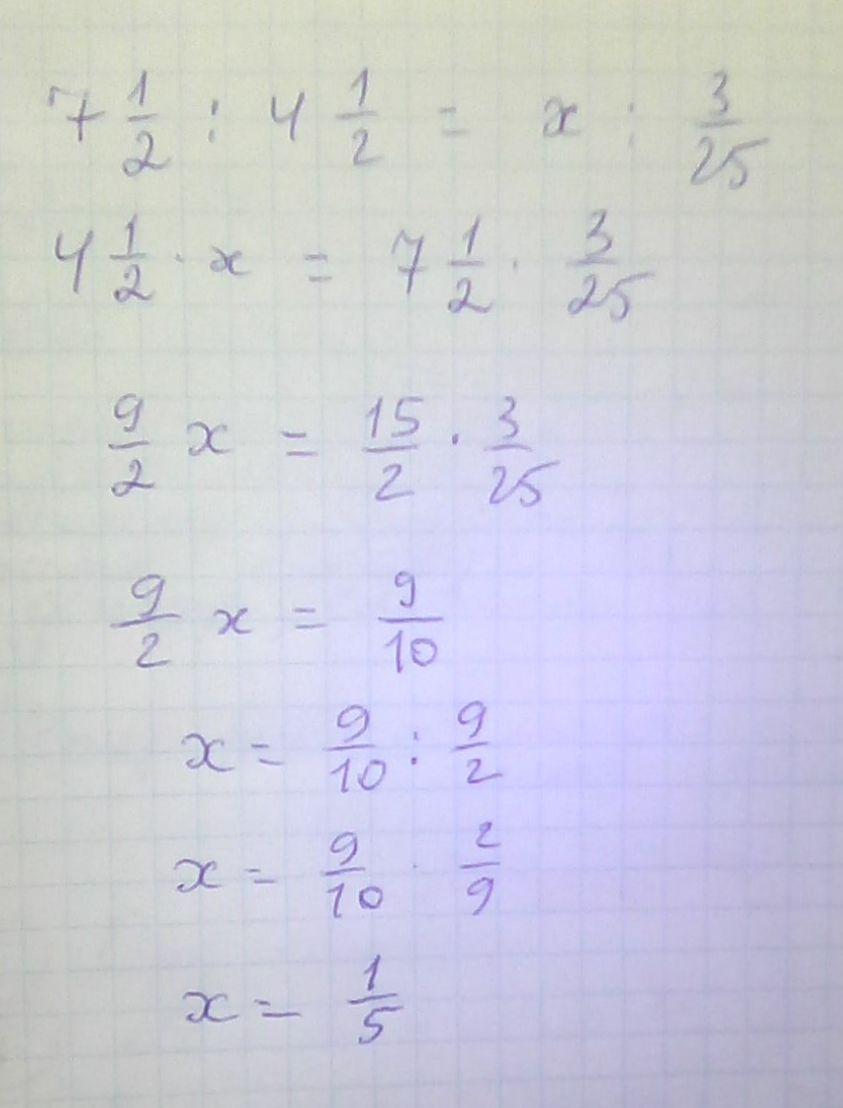 7 1/2 : 4 1/2 = x : 3/25
4 1/2 · x = 7 1/2 · 3/25
9/2 x = 15/2 · 3/25
9/2 x = 9/10
x = 9/10 : 9/2
x = 9/10 · 2/9
x = 1/5